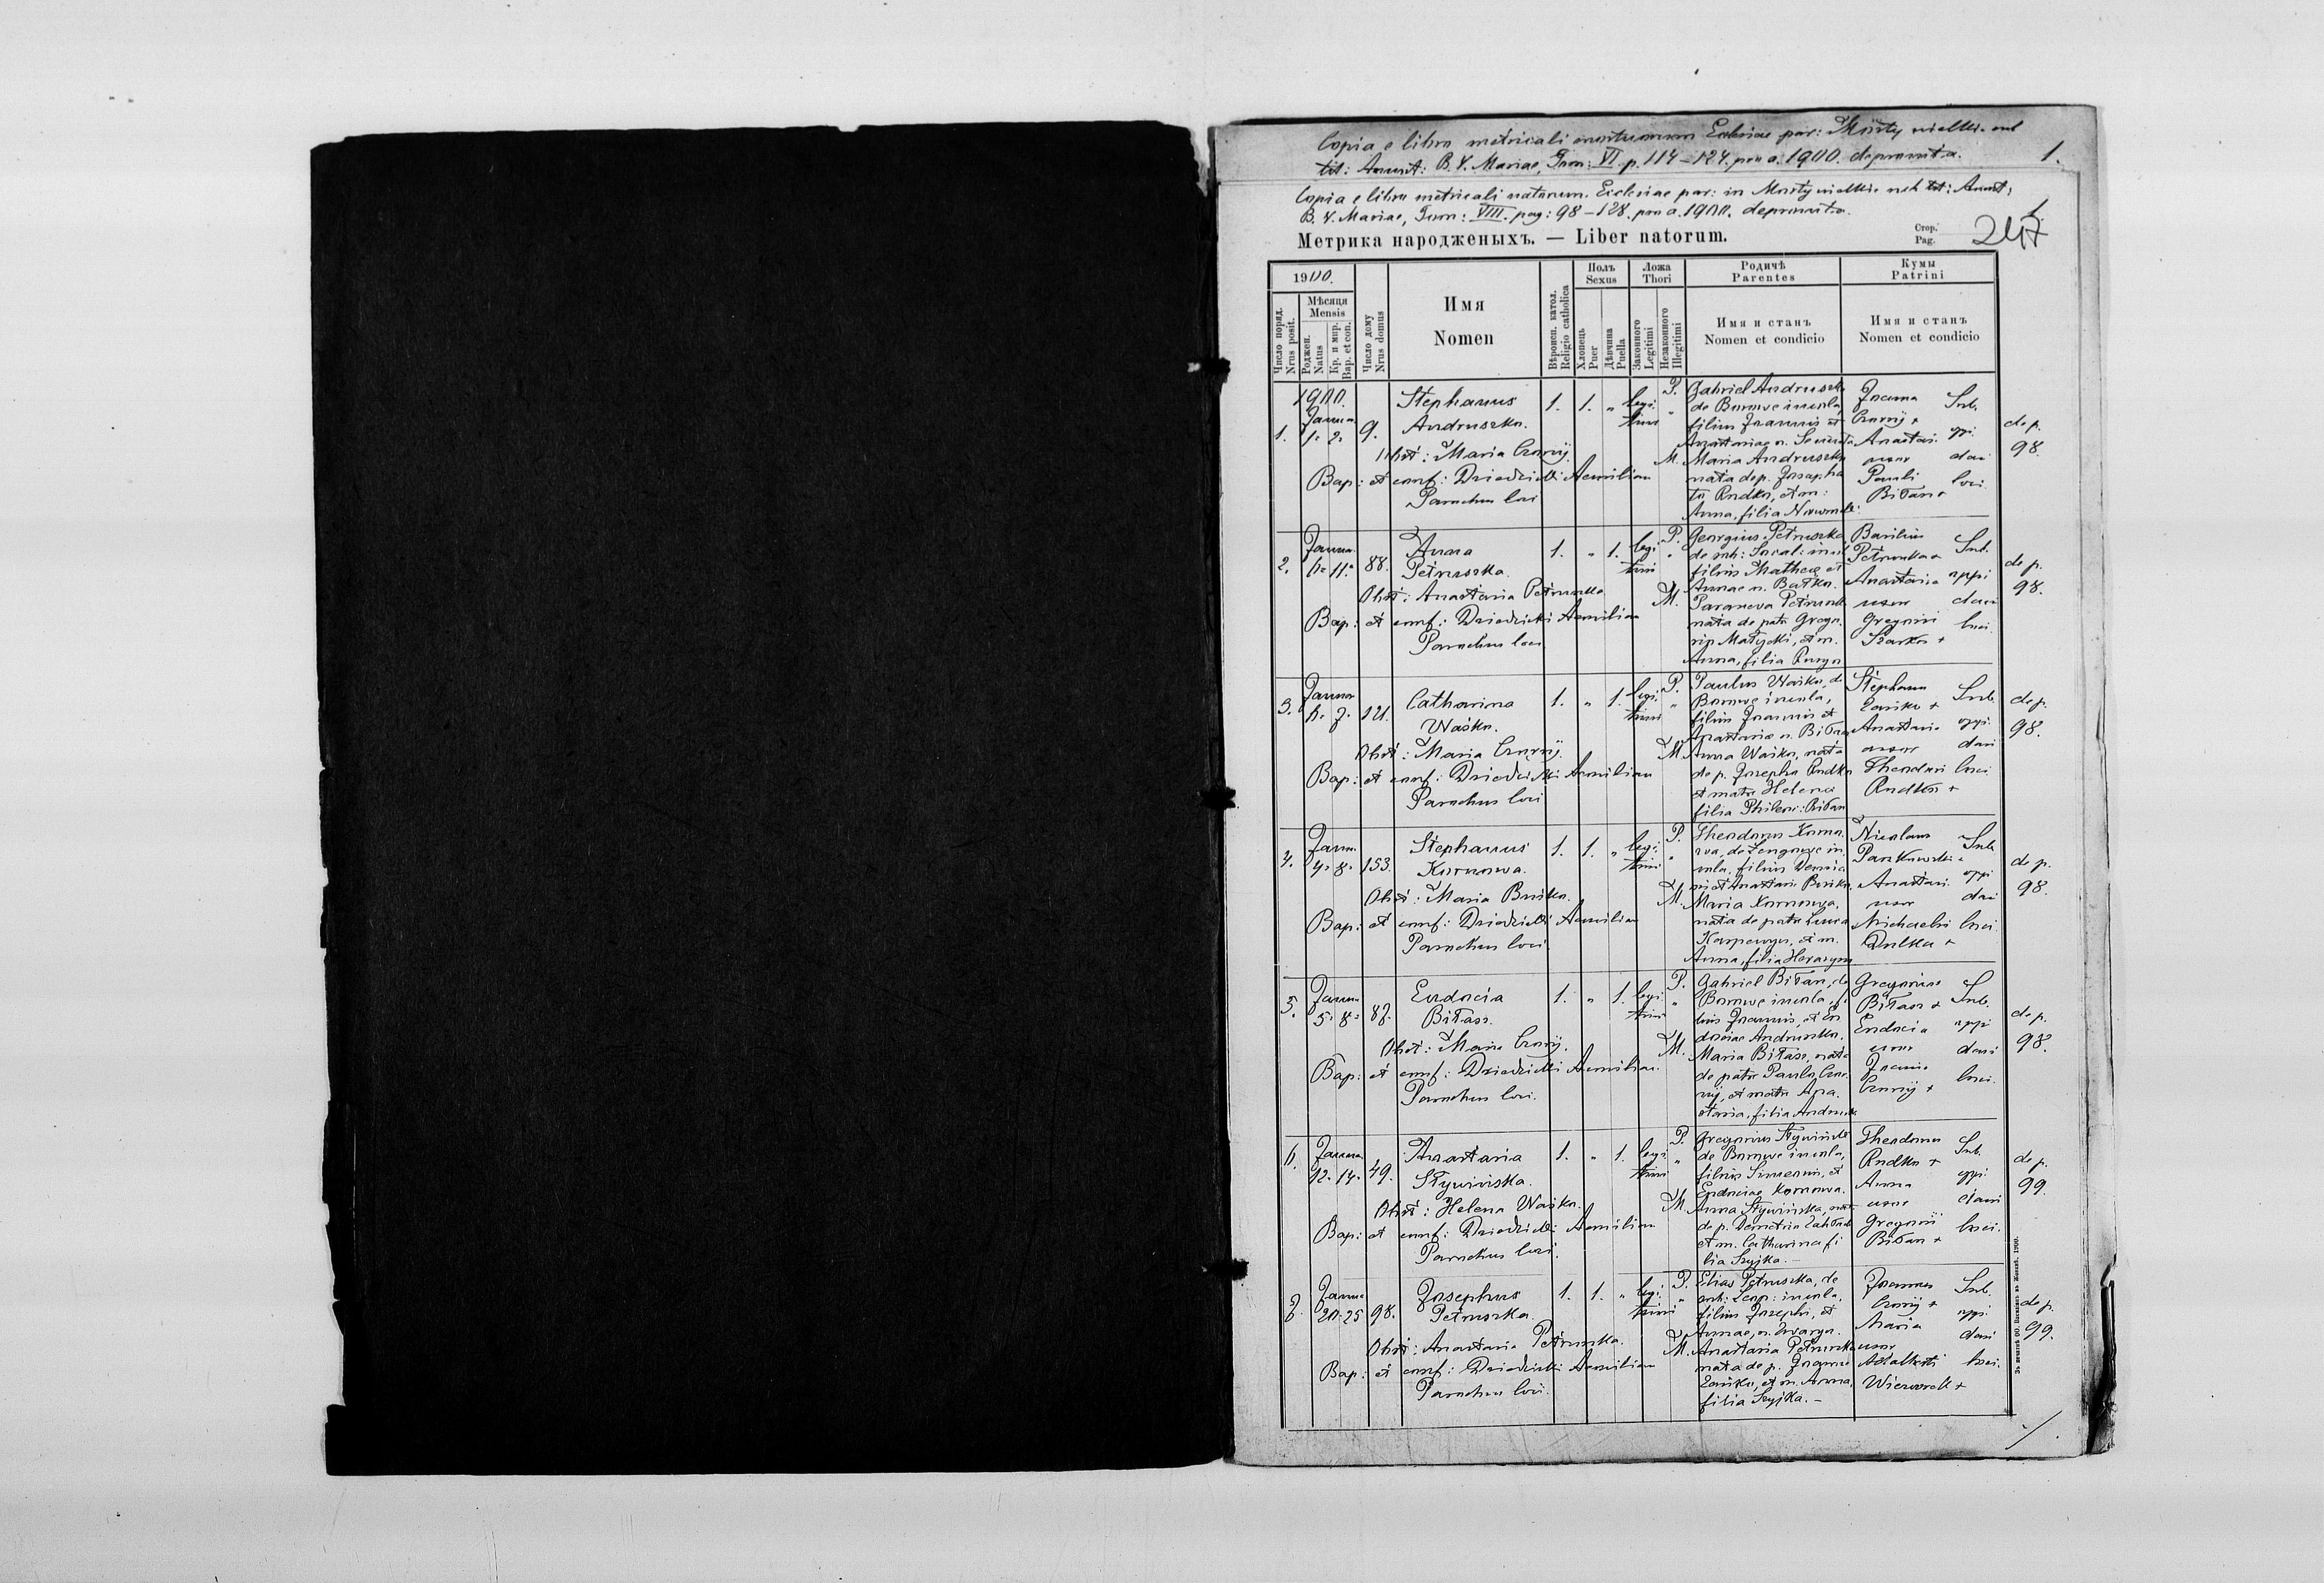 Copia e libro metricali mortuorum Ecclesiae par: Mosty wielkie sub
tit: Assumt: B. V. Mariae, Tom: VI. p. 114-124. pro a. 1900. deprompta.
1.
Copia e libro metricali natorum. Ecclesiae par: in Mosty wielkie sub tit: Assumt:
B. V. Mariae, Tom: VIII. pag: 98-128. pro a. 1900. deprompta.
1.
Метрика народженыхъ. — Liber natorum.
Стор.
Pag.
247
1900.
Число поряд.
Nrus posit.
Мѣсяця
Mensis
Роджен.
Natus
Кр. и мир.
Bap. et con.
Число дому
Nrus domus
Имя
Nomen
Вѣроисп. катол.
Religio catholica
Полъ
Sexus
Хлопець
Puer
Дѣвчина
Puella
Ложа
Thori
Законного
Legitimi
Незаконного
Illegitimi
Родичѣ
Parentes
Имя и станъ
Nomen et condicio
Кумы
Patrini
Имя и станъ
Nomen et condicio
1900.
1. Janua. 1. 2. 9.
Stephanus
Andruszko.
1. 1. „ legi
timi „
Obst: Maria Czornij.
Bap: et conf: Dziedzicki Aemilian
Parochus loci
P. Gabriel Andruszko
de Borowe incola,
filius Joannis et
Anastasiae n.
M. Maria Andruszko
nata de p. Josapha
to Rudko, et m:
Anna, filia
Joannes
Czornij +
Anastasi.
uxor
Pauli
Biłas +
Sub.
ppi
dani
loci
de p.
98.
2. Janua. 11. 88.
Anna
Petruszka.
1. „ 1. legi
timi „
Obst: Anastasia Petruszka
Bap: et conf: Dziedzicki Aemilian
Parochus loci
P. Georgius Petruszka
de sub: Socal: incol
filius Mathei et
Annae n. Batko.
M. Parasceva Petruszk
nata de patr Grego
rio et m.
Anna, filia
Basilius
Petruszka +
Anastasia
uxor
Gregorii
Sub.
oppi
dani
loci.
de p.
98.
3. Janua. 7. 121.
Catharina
Waśko.
1. „ 1. legi
timi „
Obst: Maria Czornij.
Bap: et conf: Dziedzicki Aemilian
Parochus loci
P. Paulus Waśko, de
Borowe incola,
filius Joannis et
Anastasiae n. Biłas
M. Anna Waśko, nata
de p. Josepho Rudko
et matre Helena
filia Philem: Biłas
Stephanus
+
Anastasia
uxor
Theodori
Rudko +
Sub.
oppi
dani
loci
de p.
98.
4. Janua. 4. 8. 153.
Stephanus
Kornowa.
1. 1. „ legi
timi „
Obst: Maria Buśko.
Bap: et conf: Dziedzicki Aemilian
Parochus loci
P. Theodorus Korno
wa, de in
cola, filius Demia
ni et Anastasi. Buśko.
M. Maria Kornowa,
nata de patre Luca
et m.
Anna, filia
Nicolaus
+
Anastasi.
uxor
Michaelis
+
Sub.
oppi
dani
loci.
de p.
98.
5. Janua. 5. 8. 87.
Eudocia
Biłas.
1. „ 1. legi
timi „
Obst: Maria Czornij.
Bap: et conf: Dziedzicki Aemilian.
Parochus loci.
P. Gabriel Biłas, de
Borowe incola, fi
lius Joannis, et Eu
dociae Andruszko.
M. Maria Biłas, nata
de patre Paulo Czor
nij, et matre Ana
stasia, filia
Gregorius
Biłas +
Eudocia
uxor
Joannis
Czornij +
Sub.
oppi
dani
loci.
de p.
98.
6. Janua. 12. 14. 49.
Anastasia
1. „ 1. legi
timi „
Obst: Helena Waśko.
Bap: et conf: Dziedzicki Aemilian
Parochus loci.
P. Gregorius
de Borowe incola,
filius Simeonis, et
Eudociae Kornowa.
M. Anna
de p. Demetrio
et m. Catharina fi
lia Szyjka. —
Theodorus
Rudko +
Anna
uxor
Gregorii
Biłas +
Sub.
oppi
dani
loci.
de p.
99.
7. Janua. 20. 25 98.
Josephus
Petruszka.
1. 1. „ legi.
timi „
Obst: Anastasia Petruszka.
Bap: et conf: Dziedzicki Aemilian
Parochus loci.
P. Elias Petruszka, de
sub: incola,
filius Josephi, et
Annae, n.
M. Anastasia Petruszka
nata de p. Joanne
et m. Anna,
filia Szyjka. —
Joannes
Czornij +
Maria
uxor
Adalberti
+
Sub.
oppi
dani
loci.
de p.
99.